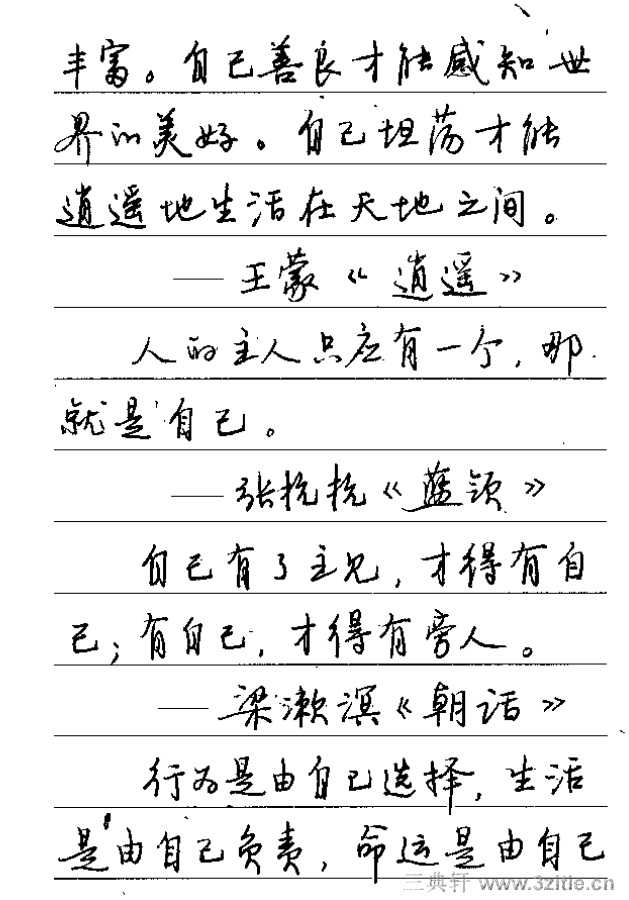 丰富。自己善良才能感知世
界的美好。自己坦荡才能
逍遥地生活在天地之间。
——王蒙《逍遥》
人的主人只应有一个,那
就是自己。
——张抗抗《蓝领》
自己有了主见,才得有自
己;有自己,才得有旁人。
——梁漱溟《朝话》
行为是由自己选择,生活
是由自己负责,命运是由自己
三典轩 www.3zitie.cn